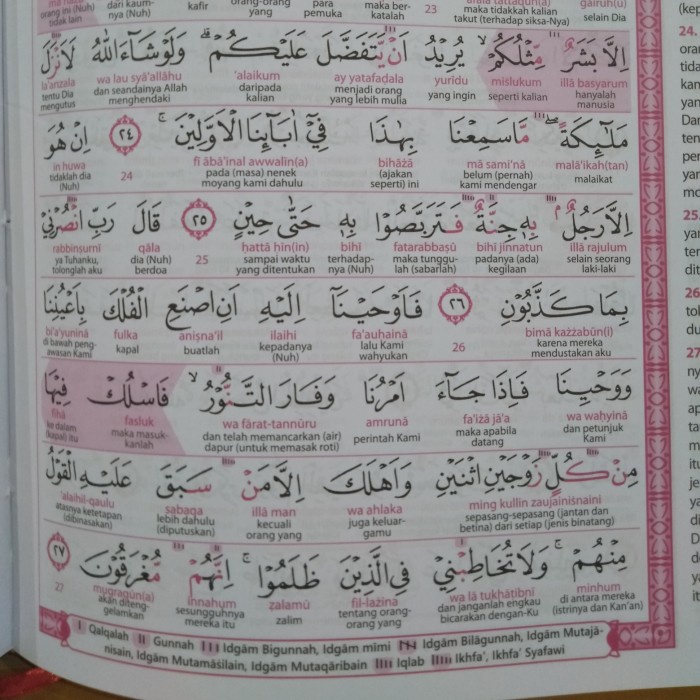 23
maka tidakkah kalian takut (terhadap siksa-Nya)
selain Dia
اِلَّا بَشَرٌ مِّثْلُكُمْۙ يُرِيْدُ اَنْ يَّتَفَضَّلَ عَلَيْكُمْۗ وَلَوْ شَاۤءَ اللّٰهُ لَاَنْزَلَ
illā basyarum miṡlukum yuridu ay yatafaḍala 'alaikum wa lau syā'allāhu la'anzala
hanyalah manusia seperti kalian yang ingin menjadi orang yang lebih mulia daripada kalian dan seandainya Allah menghendaki tentu Dia mengutus
مَلٰۤىِٕكَةً مَّا سَمِعْنَا بِهٰذَا فِيْٓ اٰبَاۤىِٕنَا الْاَوَّلِيْنَ ۚ ٢٤ اِنْ هُوَ
malā'ikah(tan) mā sami'nā bihāżā fī ābā'inal awwalīn(a) 24 in huwa
malaikat belum (pernah) kami mendengar (ajakan seperti) ini pada (masa) nenek moyang kami dahulu tidaklah dia (Nuh)
اِلَّا رَجُلٌۢ بِهٖ جِنَّةٌ فَتَرَبَّصُوْا بِهٖ حَتّٰى حِيْنٍ ٢٥ قَالَ رَبِّ انْصُرْنِيْ
illā rajulum bihī jinnatun fatarabbaṣū bihī ḥattā ḥīn(in) 25 qāla rabbinṣurnī
selain seorang laki-laki padanya (ada) kegilaan maka tunggulah (sabarlah) terhadap-nya (Nuh) sampai waktu yang ditentukan dia (Nuh) berdoa ya Tuhanku, tolonglah aku
بِمَا كَذَّبُوْنِ ٢٦ فَاَوْحَيْنَآ اِلَيْهِ اَنِ اصْنَعِ الْفُلْكَ بِاَعْيُنِنَا
bimā każżabūn(i) 26 fa'auḥainā ilaihi aniṣna'il fulka bi'a'yuninā
karena mereka mendustakan aku lalu Kami wahyukan kepadanya (Nuh) buatlah kapal di bawah peng-awasan Kami
وَوَحْيِنَا فَاِذَا جَاۤءَ اَمْرُنَا وَفَارَ التَّنُّوْرُۙ فَاسْلُكْ فِيْهَا
wa waḥyinā fa'iżā jā'a amrunā wa fārat-tannūru fasluk fihā
dan petunjuk Kami maka apabila datang perintah Kami dan telah memancarkan (air) dapur (untuk memasak roti) maka masuk-kanlah ke dalam (kapal) itu
مِنْ كُلٍّ زَوْجَيْنِ اثْنَيْنِ وَاَهْلَكَ اِلَّا مَنْ سَبَقَ عَلَيْهِ الْقَوْلُ
ming kullin zaujainiṡnaini wa ahlaka illā man sabaqa 'alaihil-qaulu
sepasang-sepasang (jantan dan betina) dari setiap (jenis binatang) juga keluar-gamu kecuali orang yang lebih dahulu (diputuskan) atasnya ketetapan (dibinasakan)
مِنْهُمْۚ وَلَا تُخَاطِبْنِيْ فِى الَّذِيْنَ ظَلَمُوْاۚ اِنَّهُمْ مُّغْرَقُوْنَ ٢٧
minhum wa lā tukhāṭibnī fil-lażīna ẓalamū innahum mugraqūn(a) 27
di antara mereka (istrinya dan Kan'an) dan janganlah engkau bicarakan dengan-Ku tentang orang-orang yang zalim sesungguhnya mereka itu akan diteng-gelamkan
Qalqalah Gunnah Idgām Bigunnah, Idgām mīmi Idgām Bilāgunnah, Idgām Mutajā-
nisain, Idgām Mutamāsilain, Idgām Mutaqāribain Iqlab Ikhfa', Ikhfa' Syafawi
24.
25
26
27